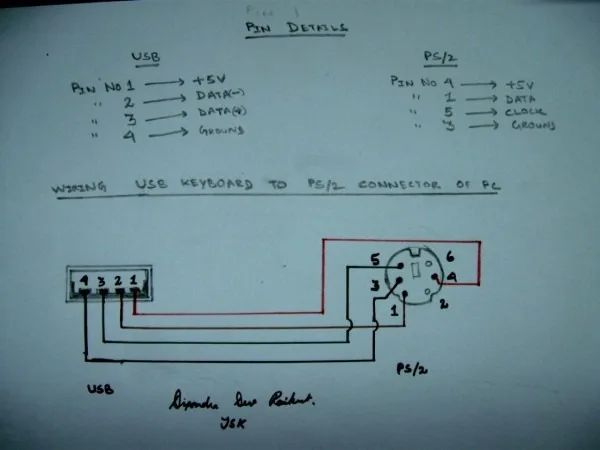 PIN DETAILS
USB
PIN NO 1 → +5V
" 2 → DATA(-)
" 3 → DATA(+)
" 4 → GROUND
PS/2
PIN NO 4 → +5V
" 1 → DATA
" 5 → CLOCK
" 3 → GROUND
WIRING USB KEYBOARD TO PS/2 CONNECTOR OF PC
4 3 2 1
USB
5 6
3 4
1 2
PS/2